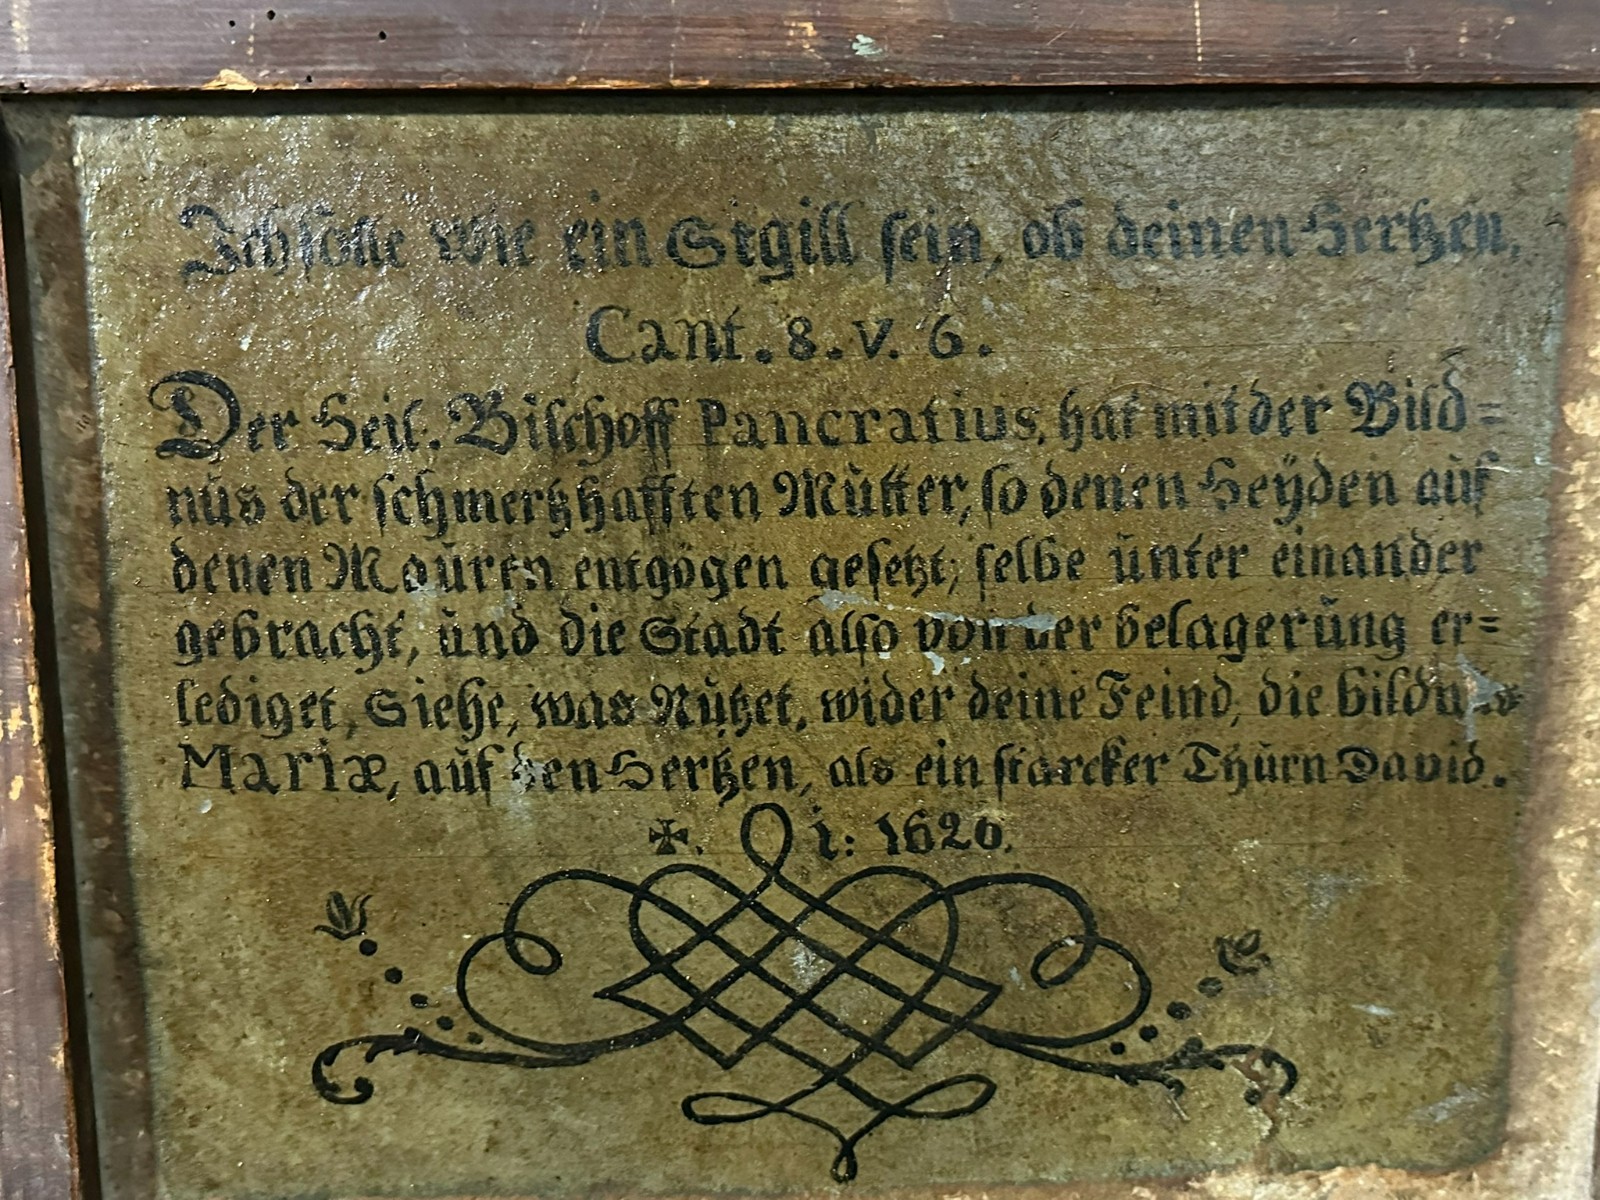 Ich solle wie ein Sigill sein, ob deinen Hertzen,
Cant. 8. v. 6.
Der Heil. Bischoff Pancratius, hat mit der Bild=
nus der schmertzhafften Mutter, so denen Heÿden auf
denen Mauren entgögen gesetzt; selbe unter einander
gebracht, und die Stadt also von der belagerung er=
lediget, Siehe, was Nutzet, wider deine Feind, die bildnus
Mariæ, auf den Hertzen, als ein starcker Thurn David.
✠. i: 1620.